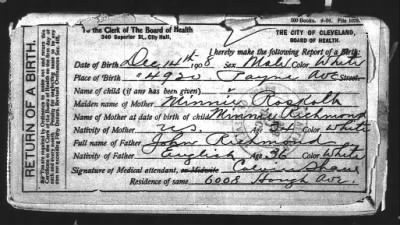 500 Books.
To the Clerk of The Board of Health
340 Superior St., City Hall,
THE CITY OF CLEVELAND,
BOARD OF HEALTH.
I hereby make the following Report of a Birth:
Date of Birth Dec 14th 1908 Sex Male Color White
Place of Birth 4920 Payne Ave Street
Name of child (if any has been given)
Maiden name of Mother Minnie
Name of Mother at date of birth of child Minnie Richmond
Nativity of Mother U.S. Age 34 Color White
Full name of Father John Richmond
Nativity of Father English Age 36 Color White
Signature of Medical attendant, or Midwife
Residence of same 6008 Hough Ave.
RETURN OF A BIRTH.